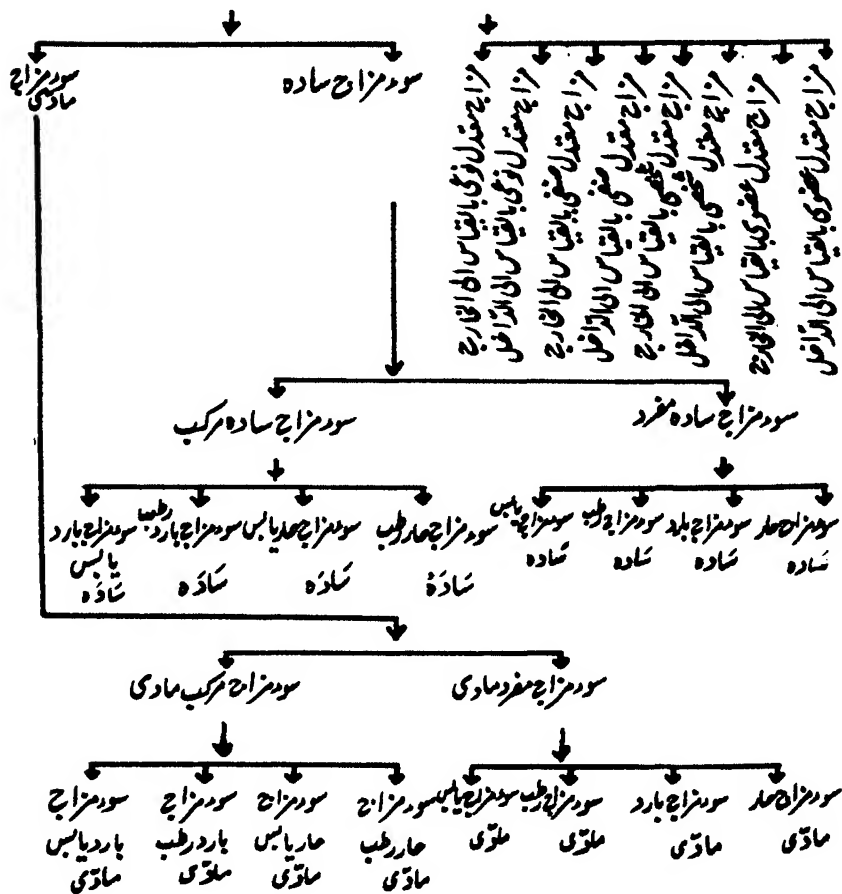 مزاج معتدل عضوی بالقیاس الی الداخل
مزاج معتدل عضوی بالقیاس الی الخارج
مزاج معتدل شخصی بالقیاس الی الداخل
مزاج معتدل شخصی بالقیاس الی الخارج
مزاج معتدل صنفی بالقیاس الی الداخل
مزاج معتدل صنفی بالقیاس الی الخارج
مزاج معتدل نوعی بالقیاس الی الداخل
مزاج معتدل نوعی بالقیاس الی الخارج
سوء مزاج سادہ
سوء مزاج
مادّی
سوء مزاج سادہ مفرد
سوء مزاج سادہ مرکب
سوء مزاج حار
سَادہ
سوء مزاج بارد
سَادہ
سوء مزاج رطب
سادہ
سوء مزاج یابس
سَادہ
سوء مزاج حار رطب
سَادَہ
سوء مزاج حار یابس
سَادَہ
سوء مزاج بارد رطب
سَادَہ
سوء مزاج بارد
یابس
سَادَہ
سوء مزاج مفرد مادی
سوء مزاج مرکب مادی
سوء مزاج حار
مادّی
سوء مزاج بارد
مادّی
سوء مزاج رطب
مادّی
سوء مزاج یابس
مادّی
سوء مزاج
حار رطب
مادّی
سوء مزاج
حار یابس
مادّی
سوء مزاج
بارد رطب
مادّی
سوء مزاج
بارد یابس
مادّی